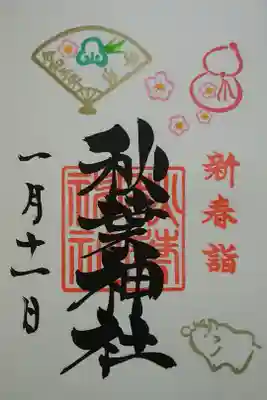 新春詣
秋葉神社
一月十一日